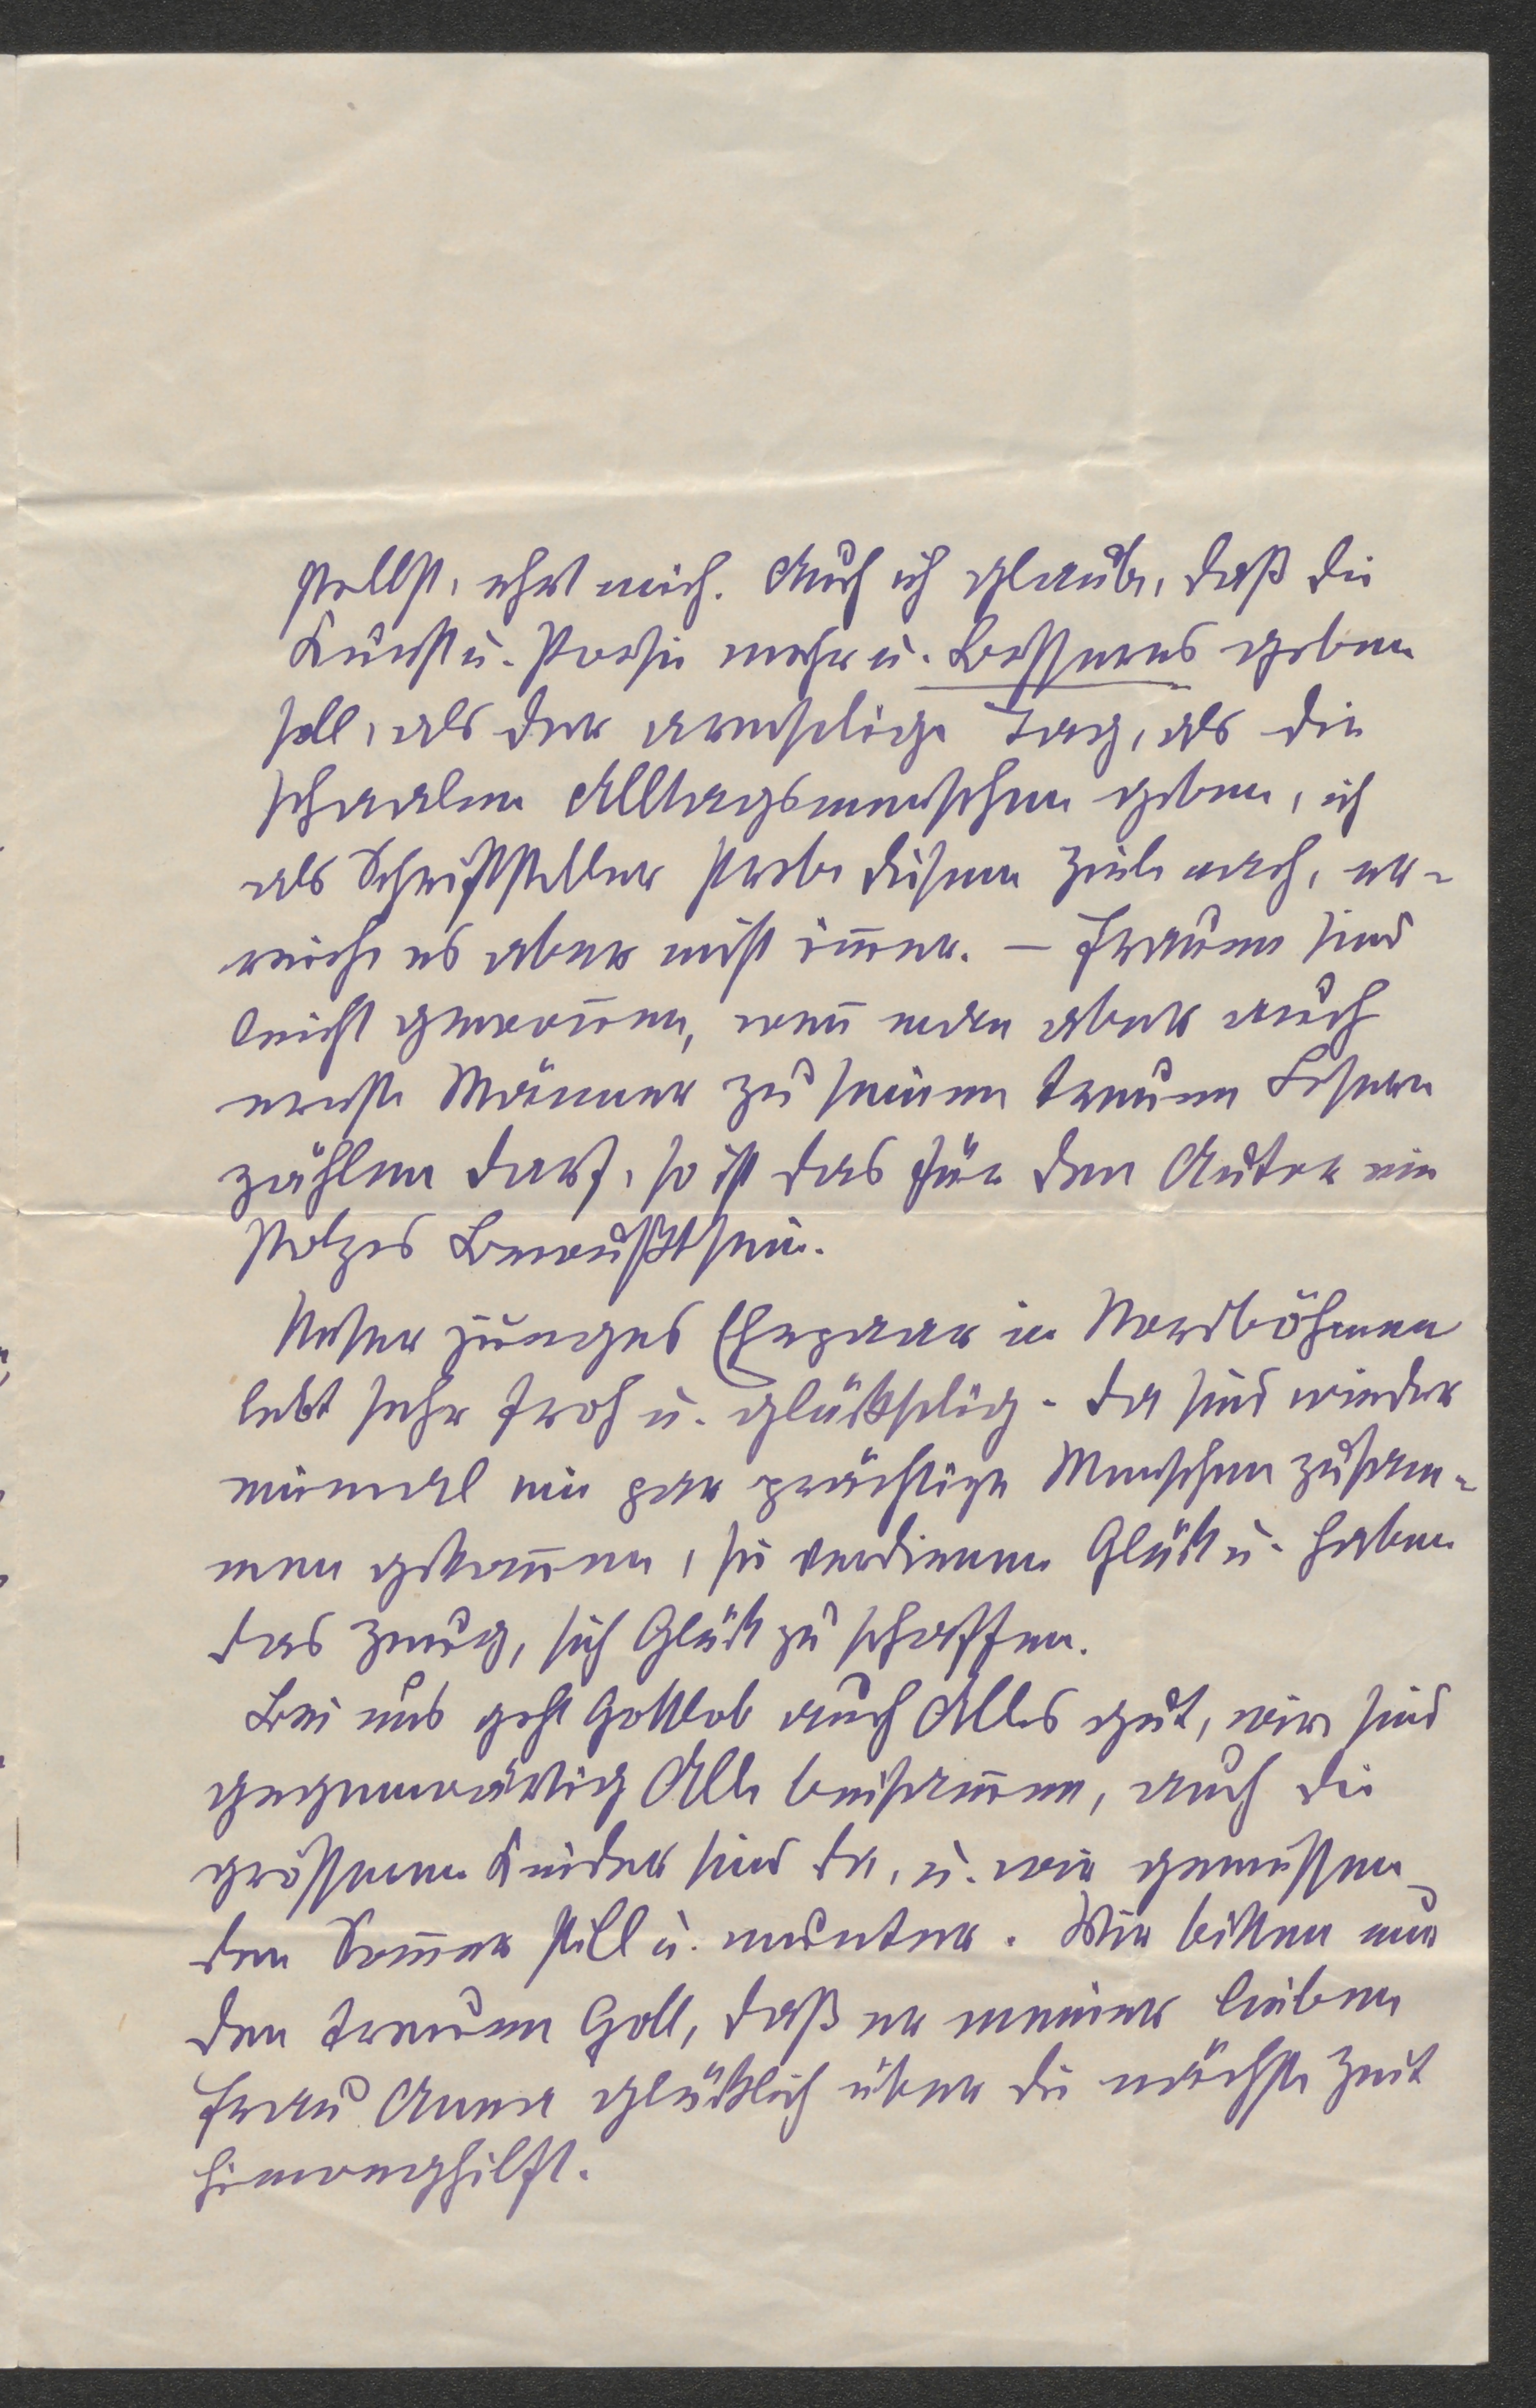 stellst, ehrt mich. Auch ich glaube, daß die
Kunst u. Poesie mehr u. Besseres geben
soll, als der armselige Tag, als die
schaalen Alltagsmenschen geben, ich
als Schriftsteller strebe diesem Ziele nach, er-
reiche es aber nicht im̄er. — Frauen sind
leicht gewon̄en, wen̄ man aber auch
ernste Männer zu seinen treuen Lesern
zählen darf, so ist das für den Autor ein
stolzes Bewußtsein.
Unser junges Ehepaar in Nordböhmen
lebt sehr froh u. glückselig. Da sind wieder
einmal ein par prächtige Menschen zusam-
men gekom̄en, sie verdienen Glück u. haben
das Zeug, sich Glück zu schaffen.
Bei uns geht Gottlob auch Alles gut, wir sind
gegenwärtig Alle beisam̄en, auch die
grösseren Kinder sind da, u. wir geniessen
den Som̄er still u. munter. Wir bitten nur
den treuen Gott, daß er meiner lieben
Frau Anna glücklich über die nächste Zeit
hinweghilft.